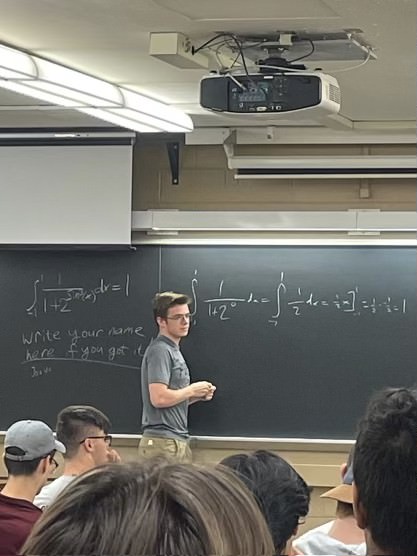 ∫₋₁¹ 1/(1+2^sin(x)) dx = 1
Write your name
here if you got it
∫₋₁¹ 1/(1+2⁰) dx = ∫₋₁¹ 1/2 dx = ½x]₋₁¹ = ½ - -½ = 1